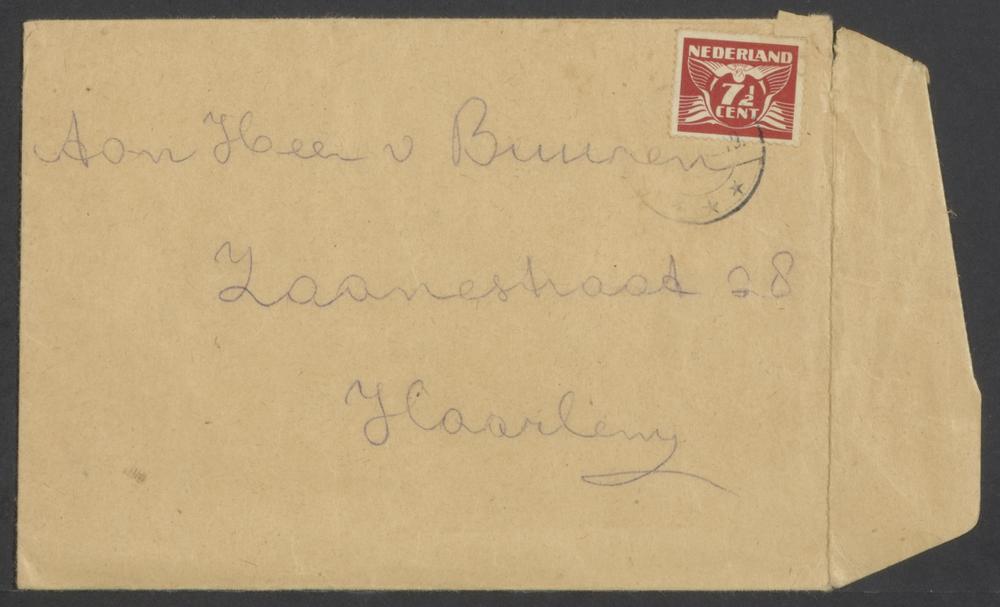 NEDERLAND
7 1/2
CENT
Aan Heer v Buuren
Zaanestraat 28
Haarlem